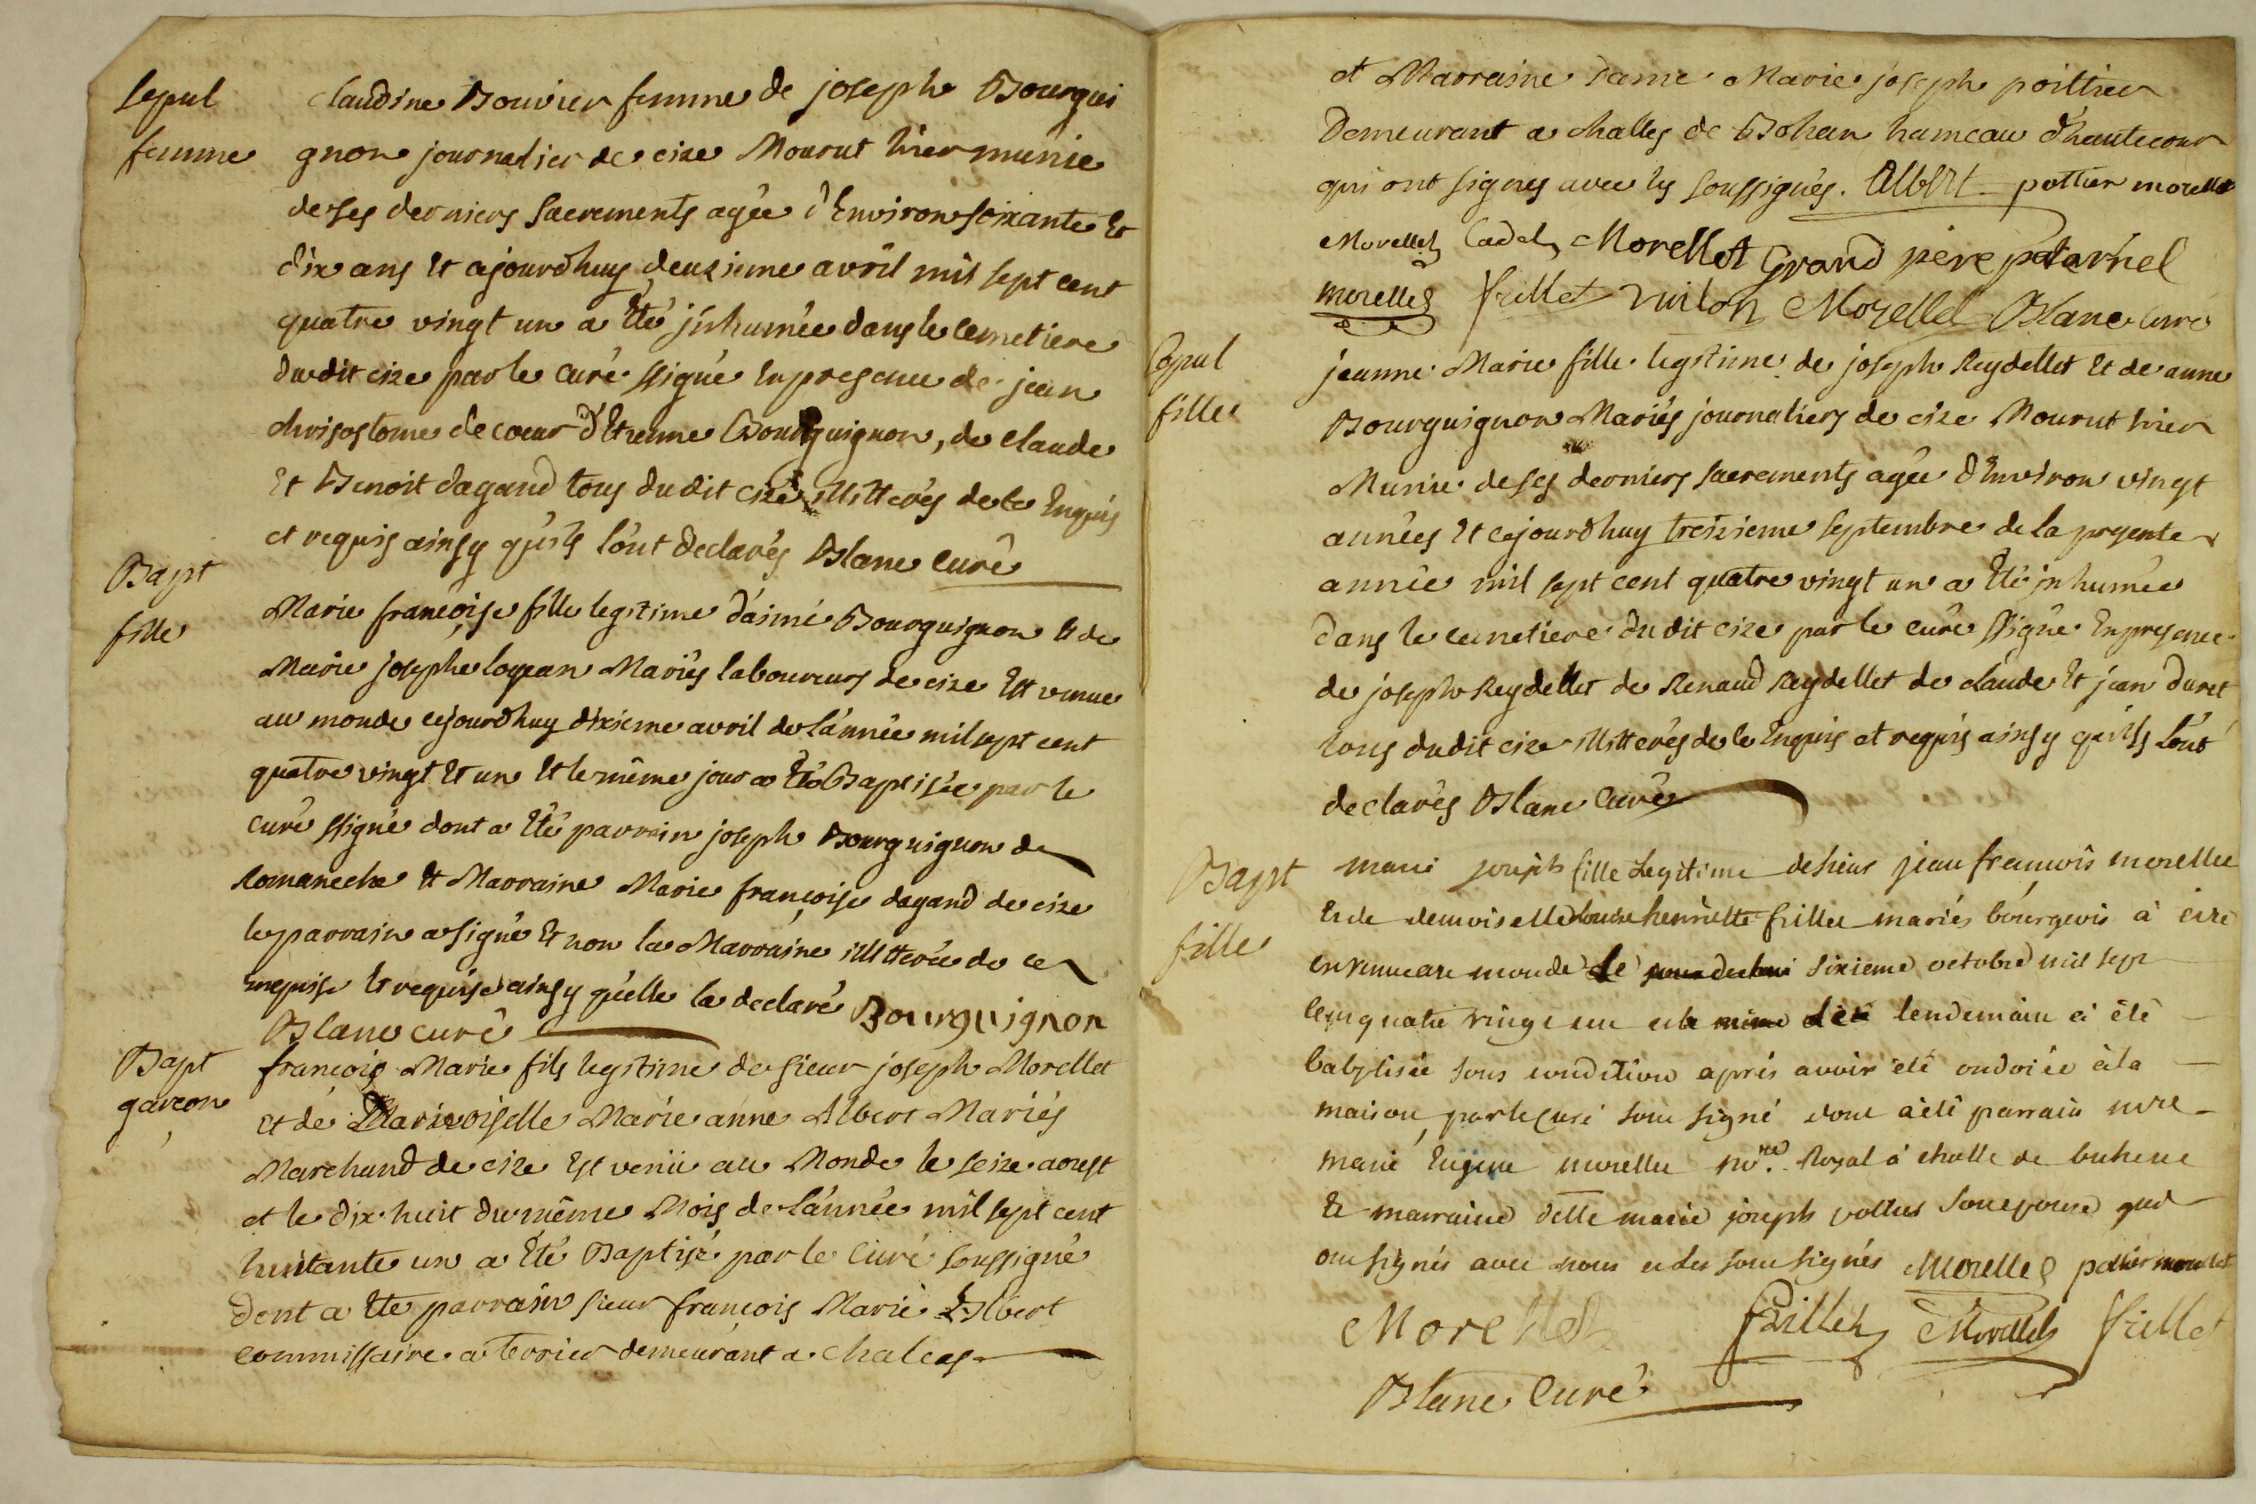 Sepul
femme
claudine Bouvier femme de joseph Bourgui
gnon journalier de cize Mourut hier munie
de ses derniers Sacrements agée d'Environ soixante Et
dix ans Et cejourdhuy deuzieme avril mil sept cent
quatre vingt un a Eté jnhumée dans le Cemetiere
dudit cize par le Curé ssigné En presence de jean
chrisostome de coeur d'Etienne Bourguignon, de claude
Et Benoit dagand tous du dit cize illitterés de ce Enquis
et requis ainsy qu'ils l'ont declarés Blanc Curé
Bapt
fille
Marie françoise fille legitime d'aimé Bourguignon Et de
Marie josephe logean Mariés laboureurs de cize Est venue
au monde cejourdhuy dixieme avril de l'année mil sept cent
quatre vingt Et un Et le même jour a Eté Baptisée par le
Curé ssigné dont a Eté parrain joseph Bourguignon de
Romaneche Et Marraine Marie françoise dagand de cize
le parrain a signé Et non la Marraine illitterée de ce
enquise Et requise ainsy qu'elle la declaré Bourguignon
Blanc curé
Bapt
garçon
françois Marie fils legitime de sieur joseph Morellet
et de Marie anne Albert Mariés
Marchand de cize Est venu au Monde le seize aoust
et le dix huit du même Mois de l'année mil sept cent
huitante un a Eté Baptisé par le Curé soussigné
dont a Eté parrain sieur françois Marie Albert
commissaire a terrier demeurant a chaleas
et Marraine dame Marie joseph poittier
Demeurant a challes de Bohan hameau d'hautecour
qui ont signés avec les soussignés. Albert pottier morellet
Morellet Cadet Morellet Grand père paternel
morellet frillet vuilon Morellet Blanc curé
Sepul
fille
jeanne Marie fille legitime de joseph Reydellet Et de anne
Bourguignon Mariés journaliers de cize Mourut hier
Munie de ses derniers sacrements agée d'Environ vingt
années Et cejourdhuy treizieme septembre de la presente
année mil sept cent quatre vingt un a Eté jnhumée
dans le cemetiere du dit cize par le curé ssigné En presence
de joseph Reydellet de Renaud Reydellet de claude Et jean duret
tous dudit cize illitterés de ce Enquis et requis ainsy qu'ils l'ont
declarés Blanc Curé
Bapt
fille
marie joseph fille Legitime de sieur jean francois morellet
Et de demoiselle louise henriette frillet mariés bourgeois à cize
en venue au monde Le sixieme octobre mil sept
cent quatre vingt un et le lendemain a été
babtisée sous condition aprés avoir été ondoiée à la
maison par le Curé sous signé dont a été parrain
marie Eugene morellet no.re Royal à challe de
Et marraine dlle marie joseph pottier son epouse qui
ont signés avec nous et les sous signés Morellet pottier morellet
Morellet frillet Morellet frillet
Blanc Curé